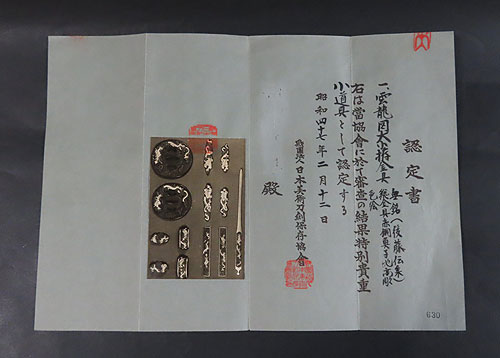 認定書
一、雲龍図大小揃金具
無銘（後藤伝来）
総金具赤銅魚子地高彫
色絵
右は當協會に於て審査の結果特別貴重
小道具として認定する
昭和四十七年二月十三日
財團法人日本美術刀剣保存協會
殿
630